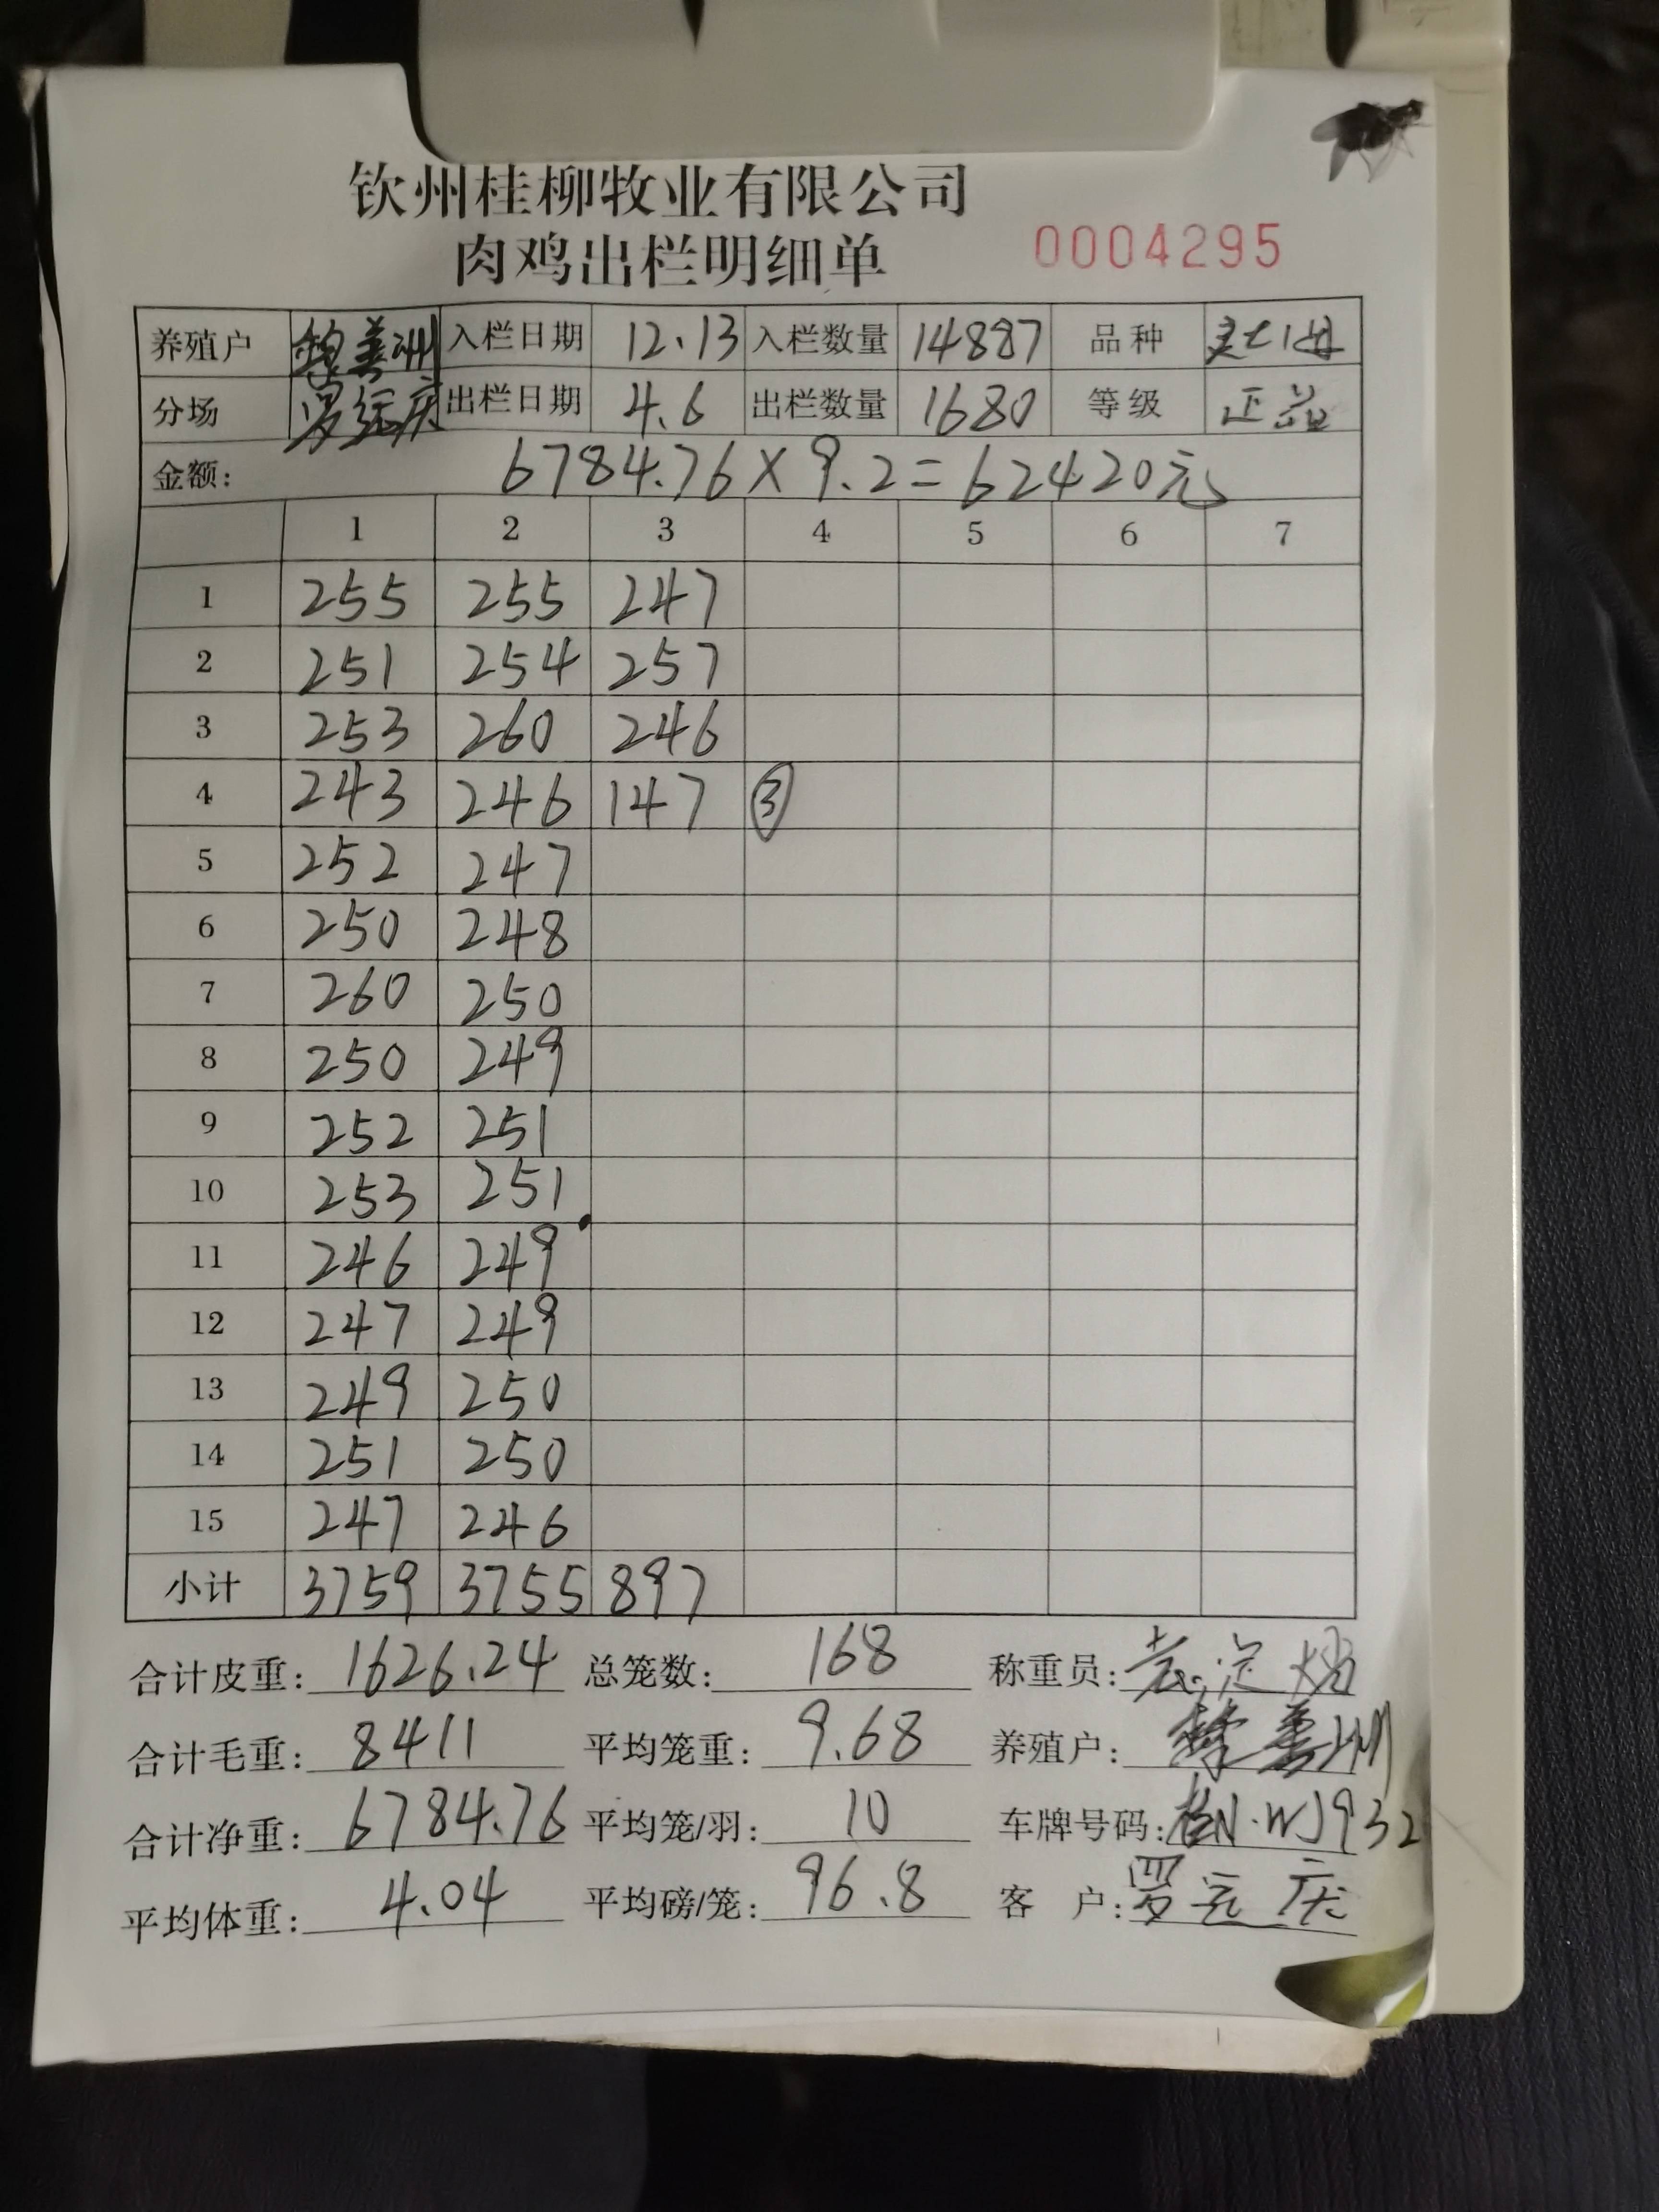 钦州桂柳牧业有限公司
肉鸡出栏明细单 0004295
养殖户 善洲 入栏日期 12.13 入栏数量 14887 品种
分场 罗远庆 出栏日期 4.6 出栏数量 1680 等级 正品
金额: 6784.76×9.2=62420元
1 2 3 4 5 6 7
1 255 255 247
2 251 254 257
3 253 260 246
4 243 246 147 ③
5 252 247
6 250 248
7 260 250
8 250 249
9 252 251
10 253 251
11 246 249
12 247 249
13 249 250
14 251 250
15 247 246
小计 3759 3755 897
合计皮重: 1626.24 总笼数: 168 称重员:
合计毛重: 8411 平均笼重: 9.68 养殖户: 善洲
合计净重: 6784.76 平均笼/羽: 10 车牌号码: 桂N·WJ932
平均体重: 4.04 平均磅/笼: 96.8 客户: 罗远庆